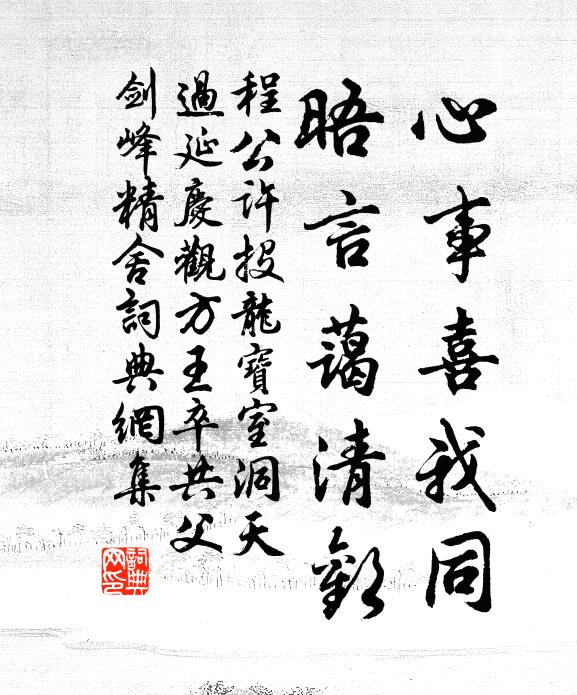 心事喜我同
晤言藹清歡
程公許投龍寶室洞天
過延慶觀方王卒共父
劍峰精舍詞典網集
詞典網印